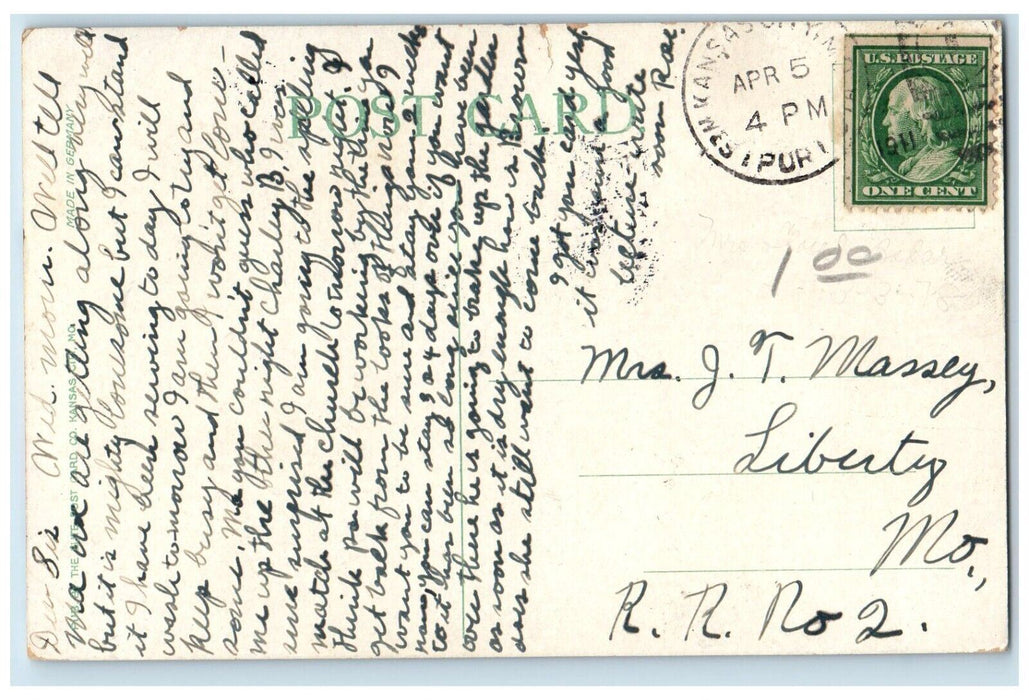 POST CARD
MADE IN GERMANY
POST CARD CO. KANSAS CITY, MO.
KANSAS CITY, MO.
APR 5
4 PM
U.S. POSTAGE
ONE CENT
1 00
Mrs. J. T. Massey,
Liberty
Mo.,
R. R. No 2.
Dear Sis Wed. morn. Well tell
Ma we are getting along very well
but it is mighty lonesome but I can stand
it. I have been sewing to day, I will
wash tomorrow I am going to try and
keep busy and then I won't get lone-
some. Ma you couldn't guess who called
me up the other night Charley B, I was
sure surprised I am going to the spelling
match at the church tomorrow night. I
think Pa will be working by the time you
get back from the looks of things now. I
want you to be sure and stay your week
you can stay 3 or 4 days over if you want
to it has been so long since you have been
over there he is going to break up the garden
as soon as it is dry enough how is Brown
does she still want to come back
I got your card yes
it was a good
picture write
soon Rae.